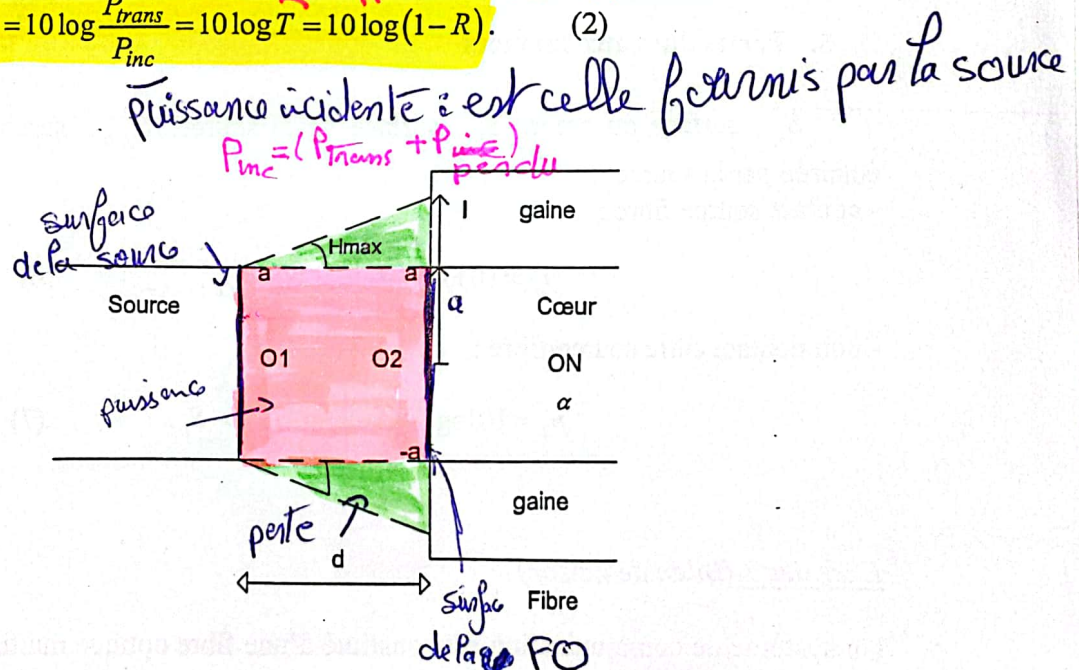 = 10 log P_trans / P_inc = 10 log T = 10 log(1 − R). (2)
puissance icidente : est celle fournis par la source
P_inc = (P_Trans + P_perdu)
surface
de la sourc
l
gaine
Hmax
a
a
Source
a
Cœur
O1
O2
ON
puissance
α
-a
gaine
perte
d
Fibre
de la FO